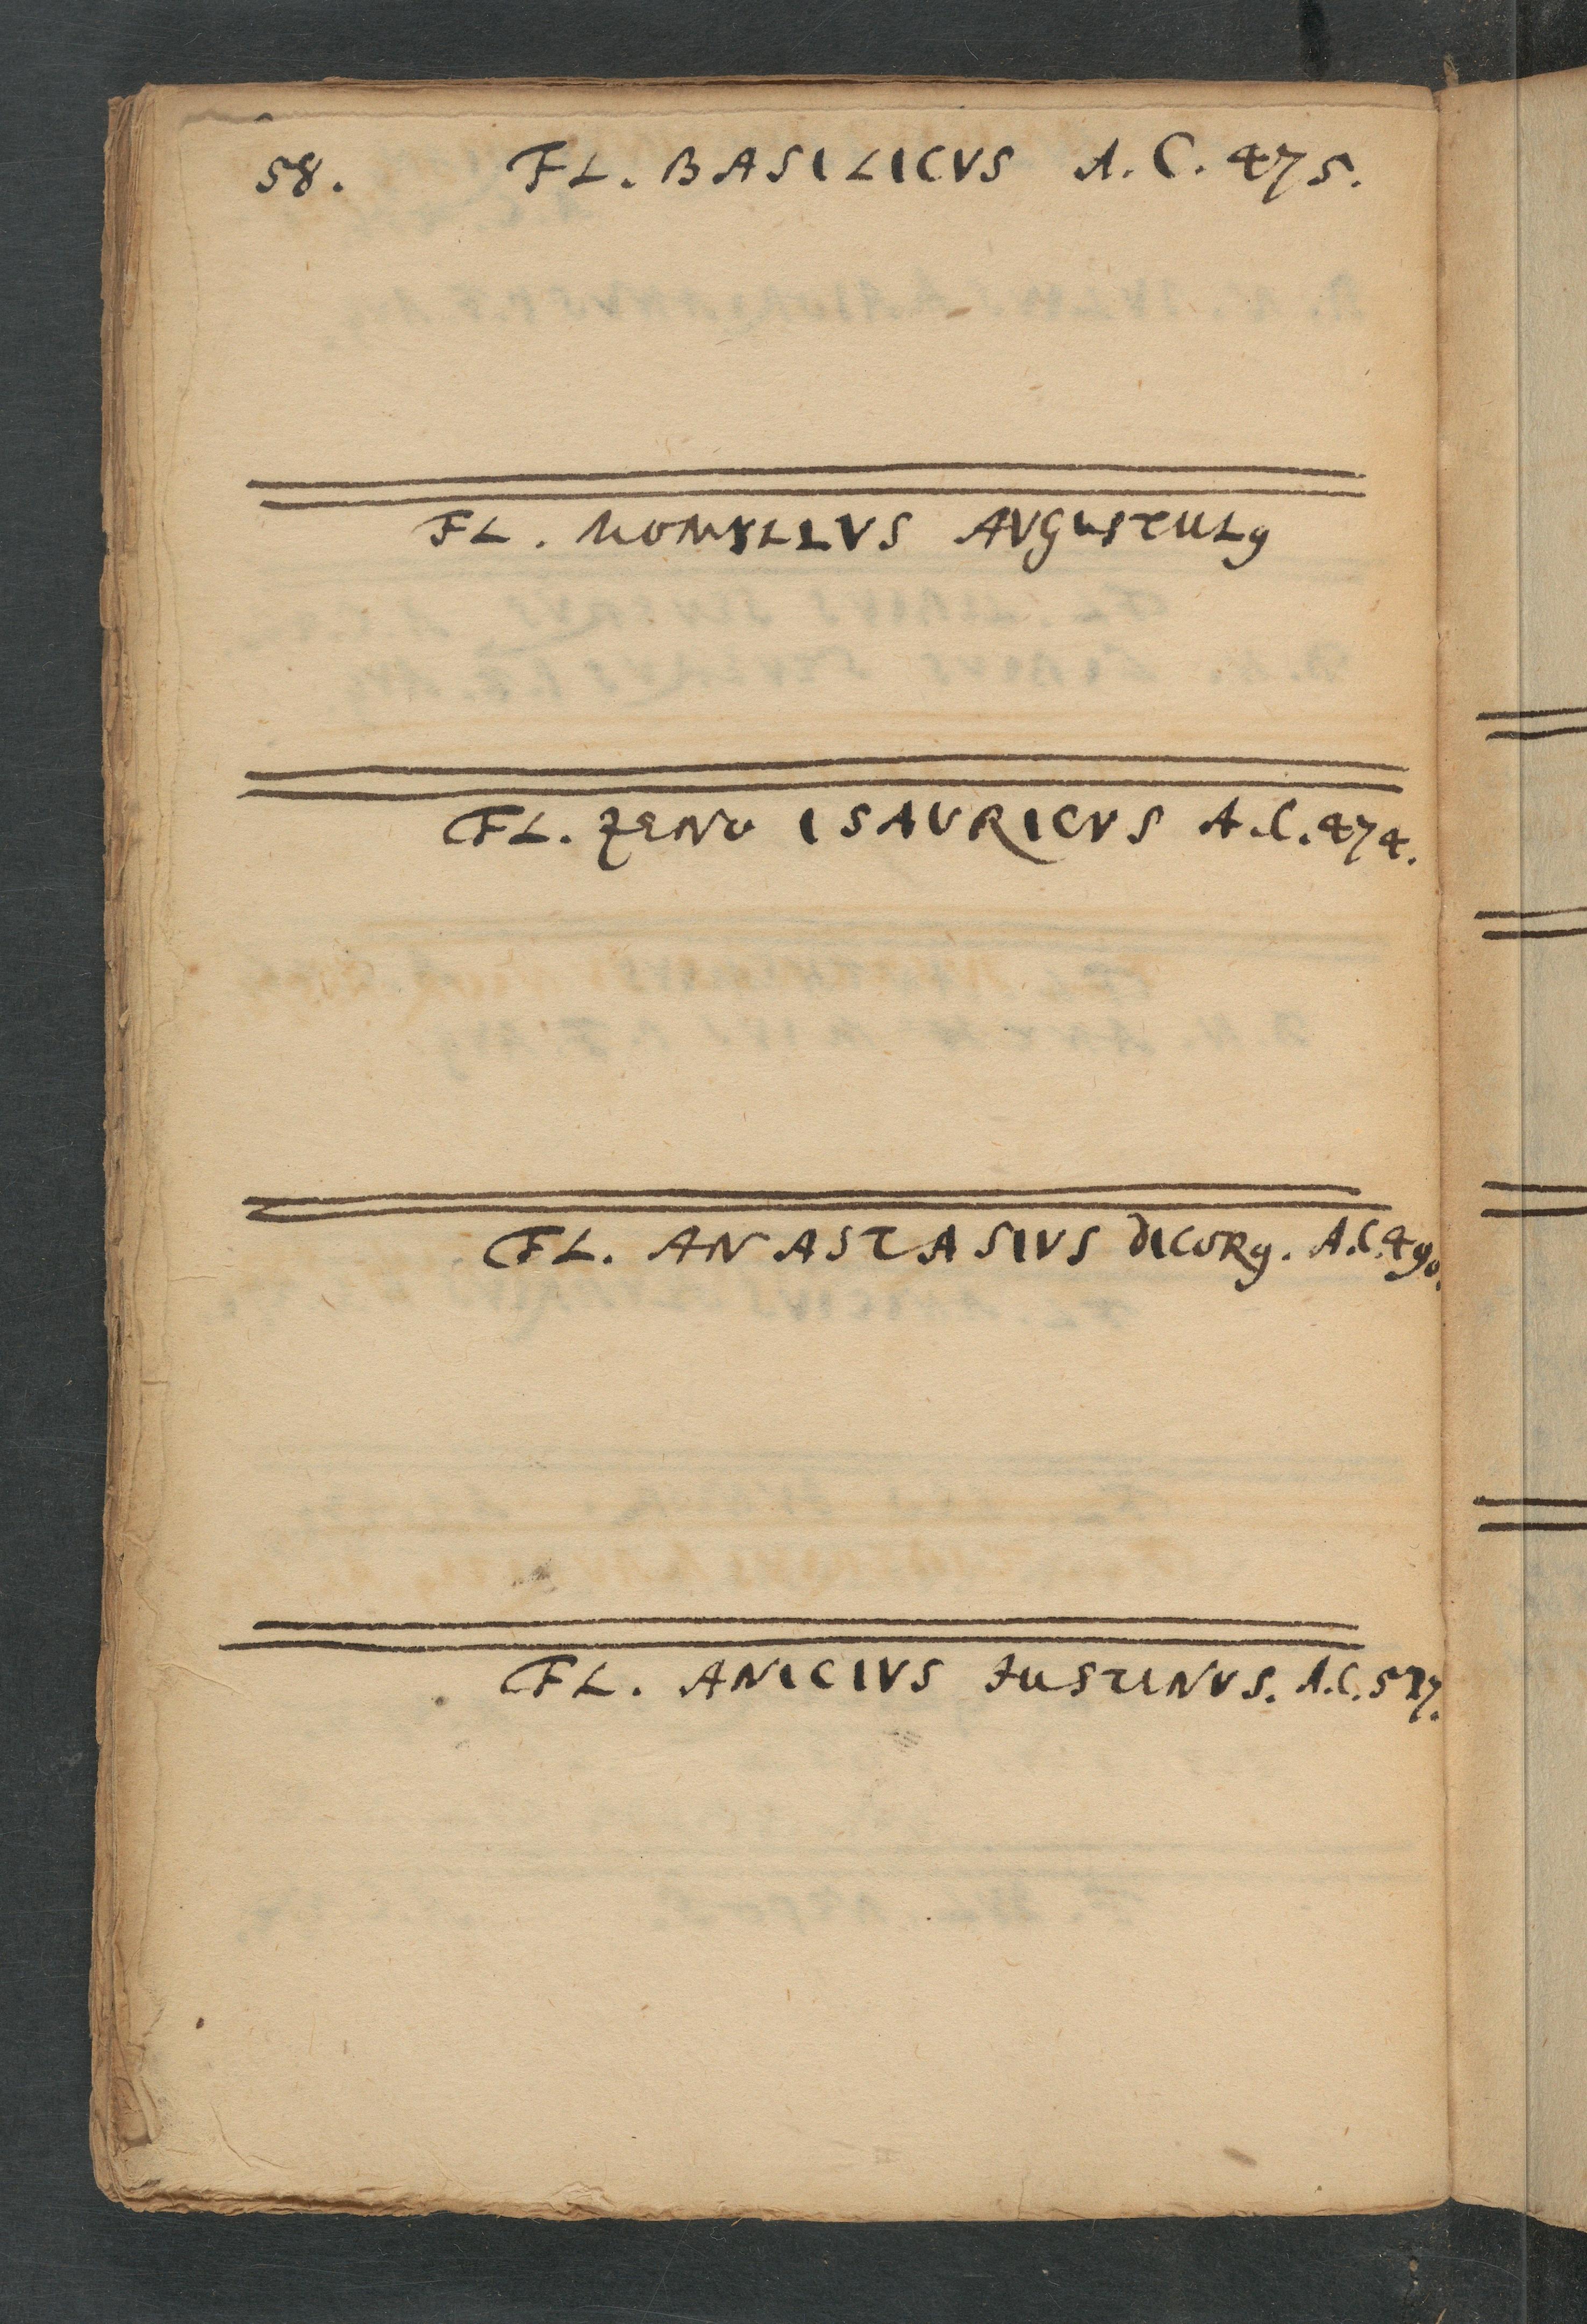 58. FL. BASILICVS A.C. 475.
FL. MOMYLLVS AUGUSTULꝰ
FL. ZENO ISAURICVS A.C. 474.
FL. ANASTASIVS DICORꝰ. A.C. 490.
FL. ANICIVS JUSTINVS. A.C.